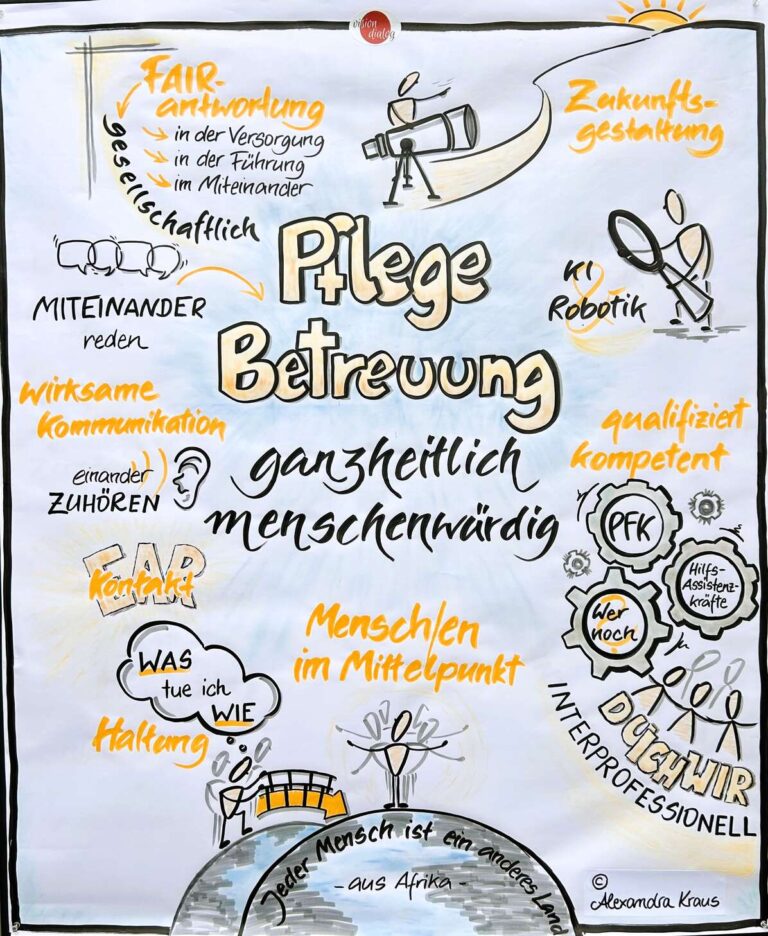 vision
dialog
FAIR-
antwortung
in der Versorgung
in der Führung
im Miteinander
gesellschaftlich
Zukunfts-
gestaltung
MITEINANDER
reden
Pflege
Betreuung
ganzheitlich
menschenwürdig
KI
&
Robotik
wirksame
Kommunikation
einander
ZUHÖREN
qualifiziert
kompetent
PFK
Hilfs-
Assistenz-
kräfte
Wer
noch
?
EAR
Kontakt
Mensch/en
im Mittelpunkt
WAS
tue ich
WIE
Haltung
DUICHWIR
INTERPROFESSIONELL
Jeder Mensch ist ein anderes Land
- aus Afrika -
©
Alexandra Kraus